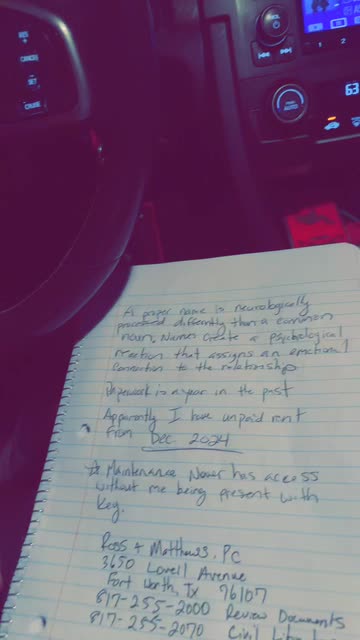 RES +
CANCEL
SET -
CRUISE
VOL
1 2
AUTO
63
A proper name is neurologically
processed differently than a common
noun, Names create a psychological
reaction that assigns an emotional
connection to the relationship
Paperwork is a year in the past
Apparently I have unpaid rent
from Dec. 2024
Maintenance Never has access
without me being present with
key.
Ross & Matthews, PC
3650 Lovell Avenue
Fort Worth, Tx 76107
817-255-2000 Review Documents
817-255-2070 Civil